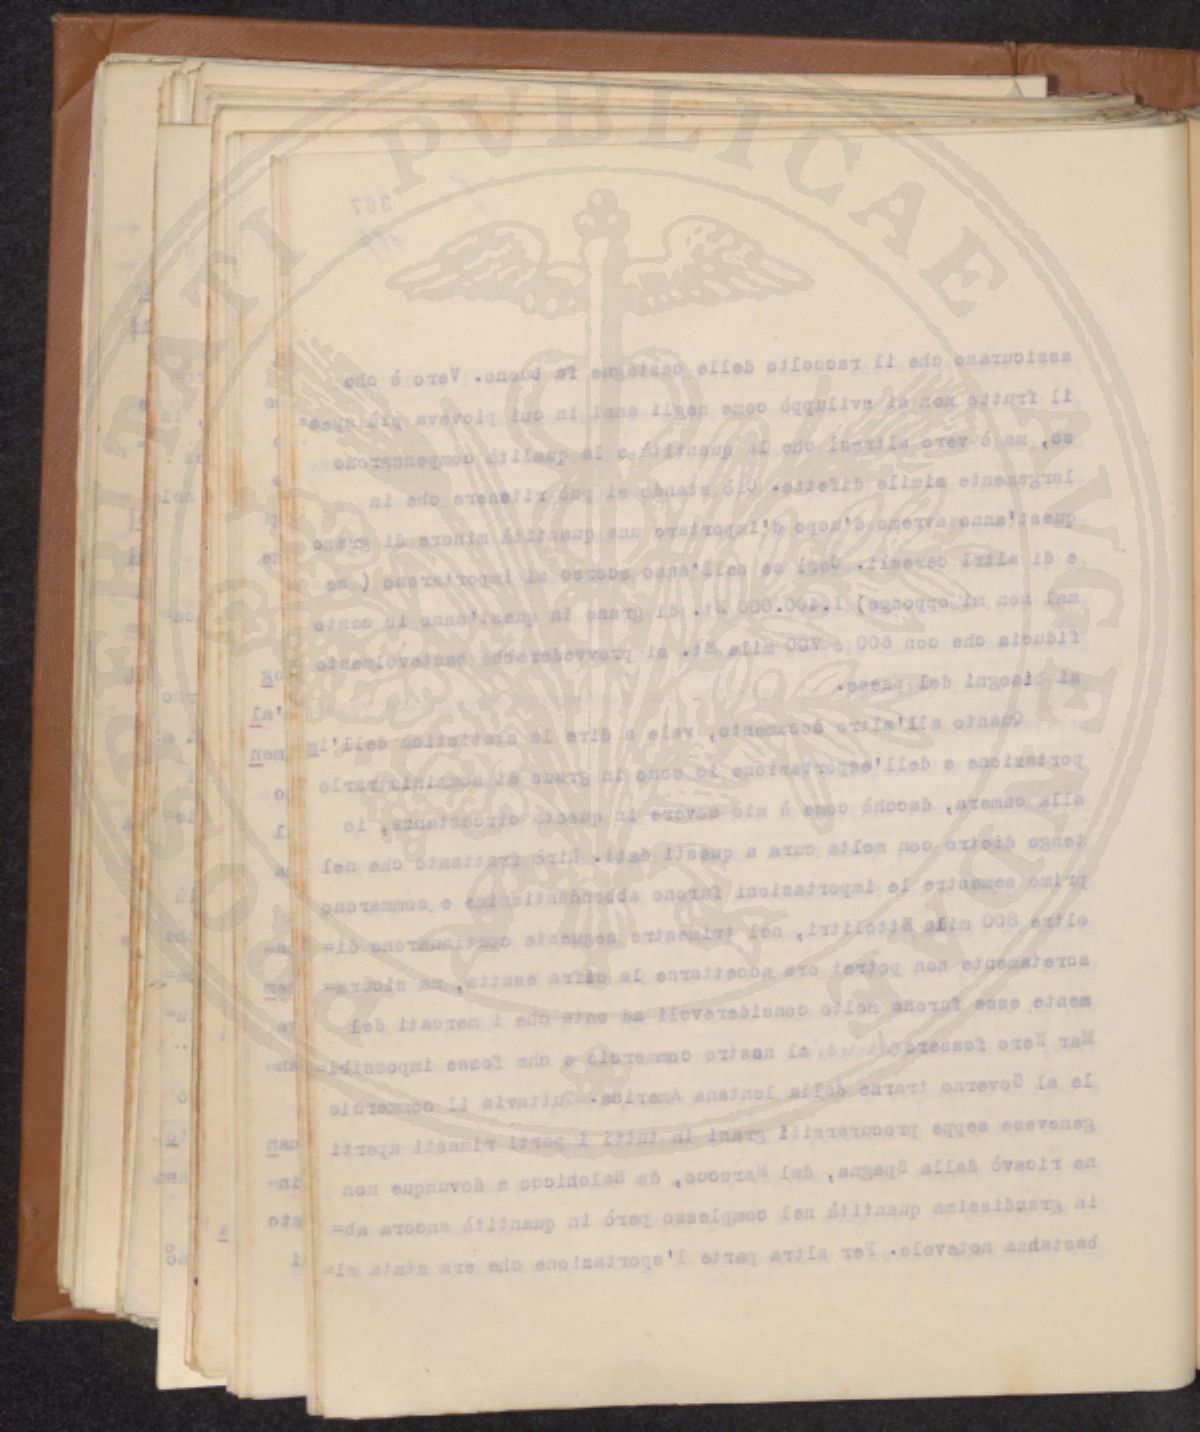 367
assicurano che il raccolto delle castagne fu buono. Vero è che
il frutto non si sviluppò come negli anni in cui pioveva più spes=
so, ma è vero altresì che la quantità e la qualità compensarono
largamente simile difetto. Ciò stando si può ritenere che in
quest'anno avremo d'uopo d'importare una quantità minore di grano
e di altri cereali. Così se nell'anno scorso si importarono ( se
mal non mi oppongo) 1.400.000 Et. di grano in quest'anno io conto
fiducia che con 600 o 700 mila Et. si provvederebbe bastevolmente
ai bisogni del paese.
Quanto all'altro documento, vale a dire la statistica dell'im
portazione e dell'esportazione io sono in grado di somministrarlo
alla camera, dacchè come è mio dovere in questa circostanza, io
tengo dietro con molta cura a questi dati. Dirò frattanto che nel
primo semestre le importazioni furono abbondantissime e sommarono
oltre 800 mila Ettolitri, nel trimestre seguente continuarono di=
scretamente non potrei ora accettarne la cifra esatta, ma sicura=
mente esse furono molto considerevoli ad onta che i mercati del
Mar Nero fossero al nostro commercio e che fosse impossibi=
le al Governo trarne dalla lontana America. Tuttavia il commercio
genovese seppe procurarsili grani in tutti i porti rimasti aperti
ne ricavò dalla Spagna, dal Marocco, da Salonicco e dovunque non
in grandissima quantità nel complesso però in quantità ancora ab=
bastanza notevole. Per altra parte l'sportazione che era stata al=